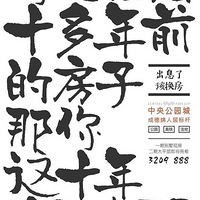 十多年前
的房子
那你
这十年
出息了
该换房
中央公园城
成德绵人居标杆
公园
一期别墅现房
二期大平层即将亮相
3209 888